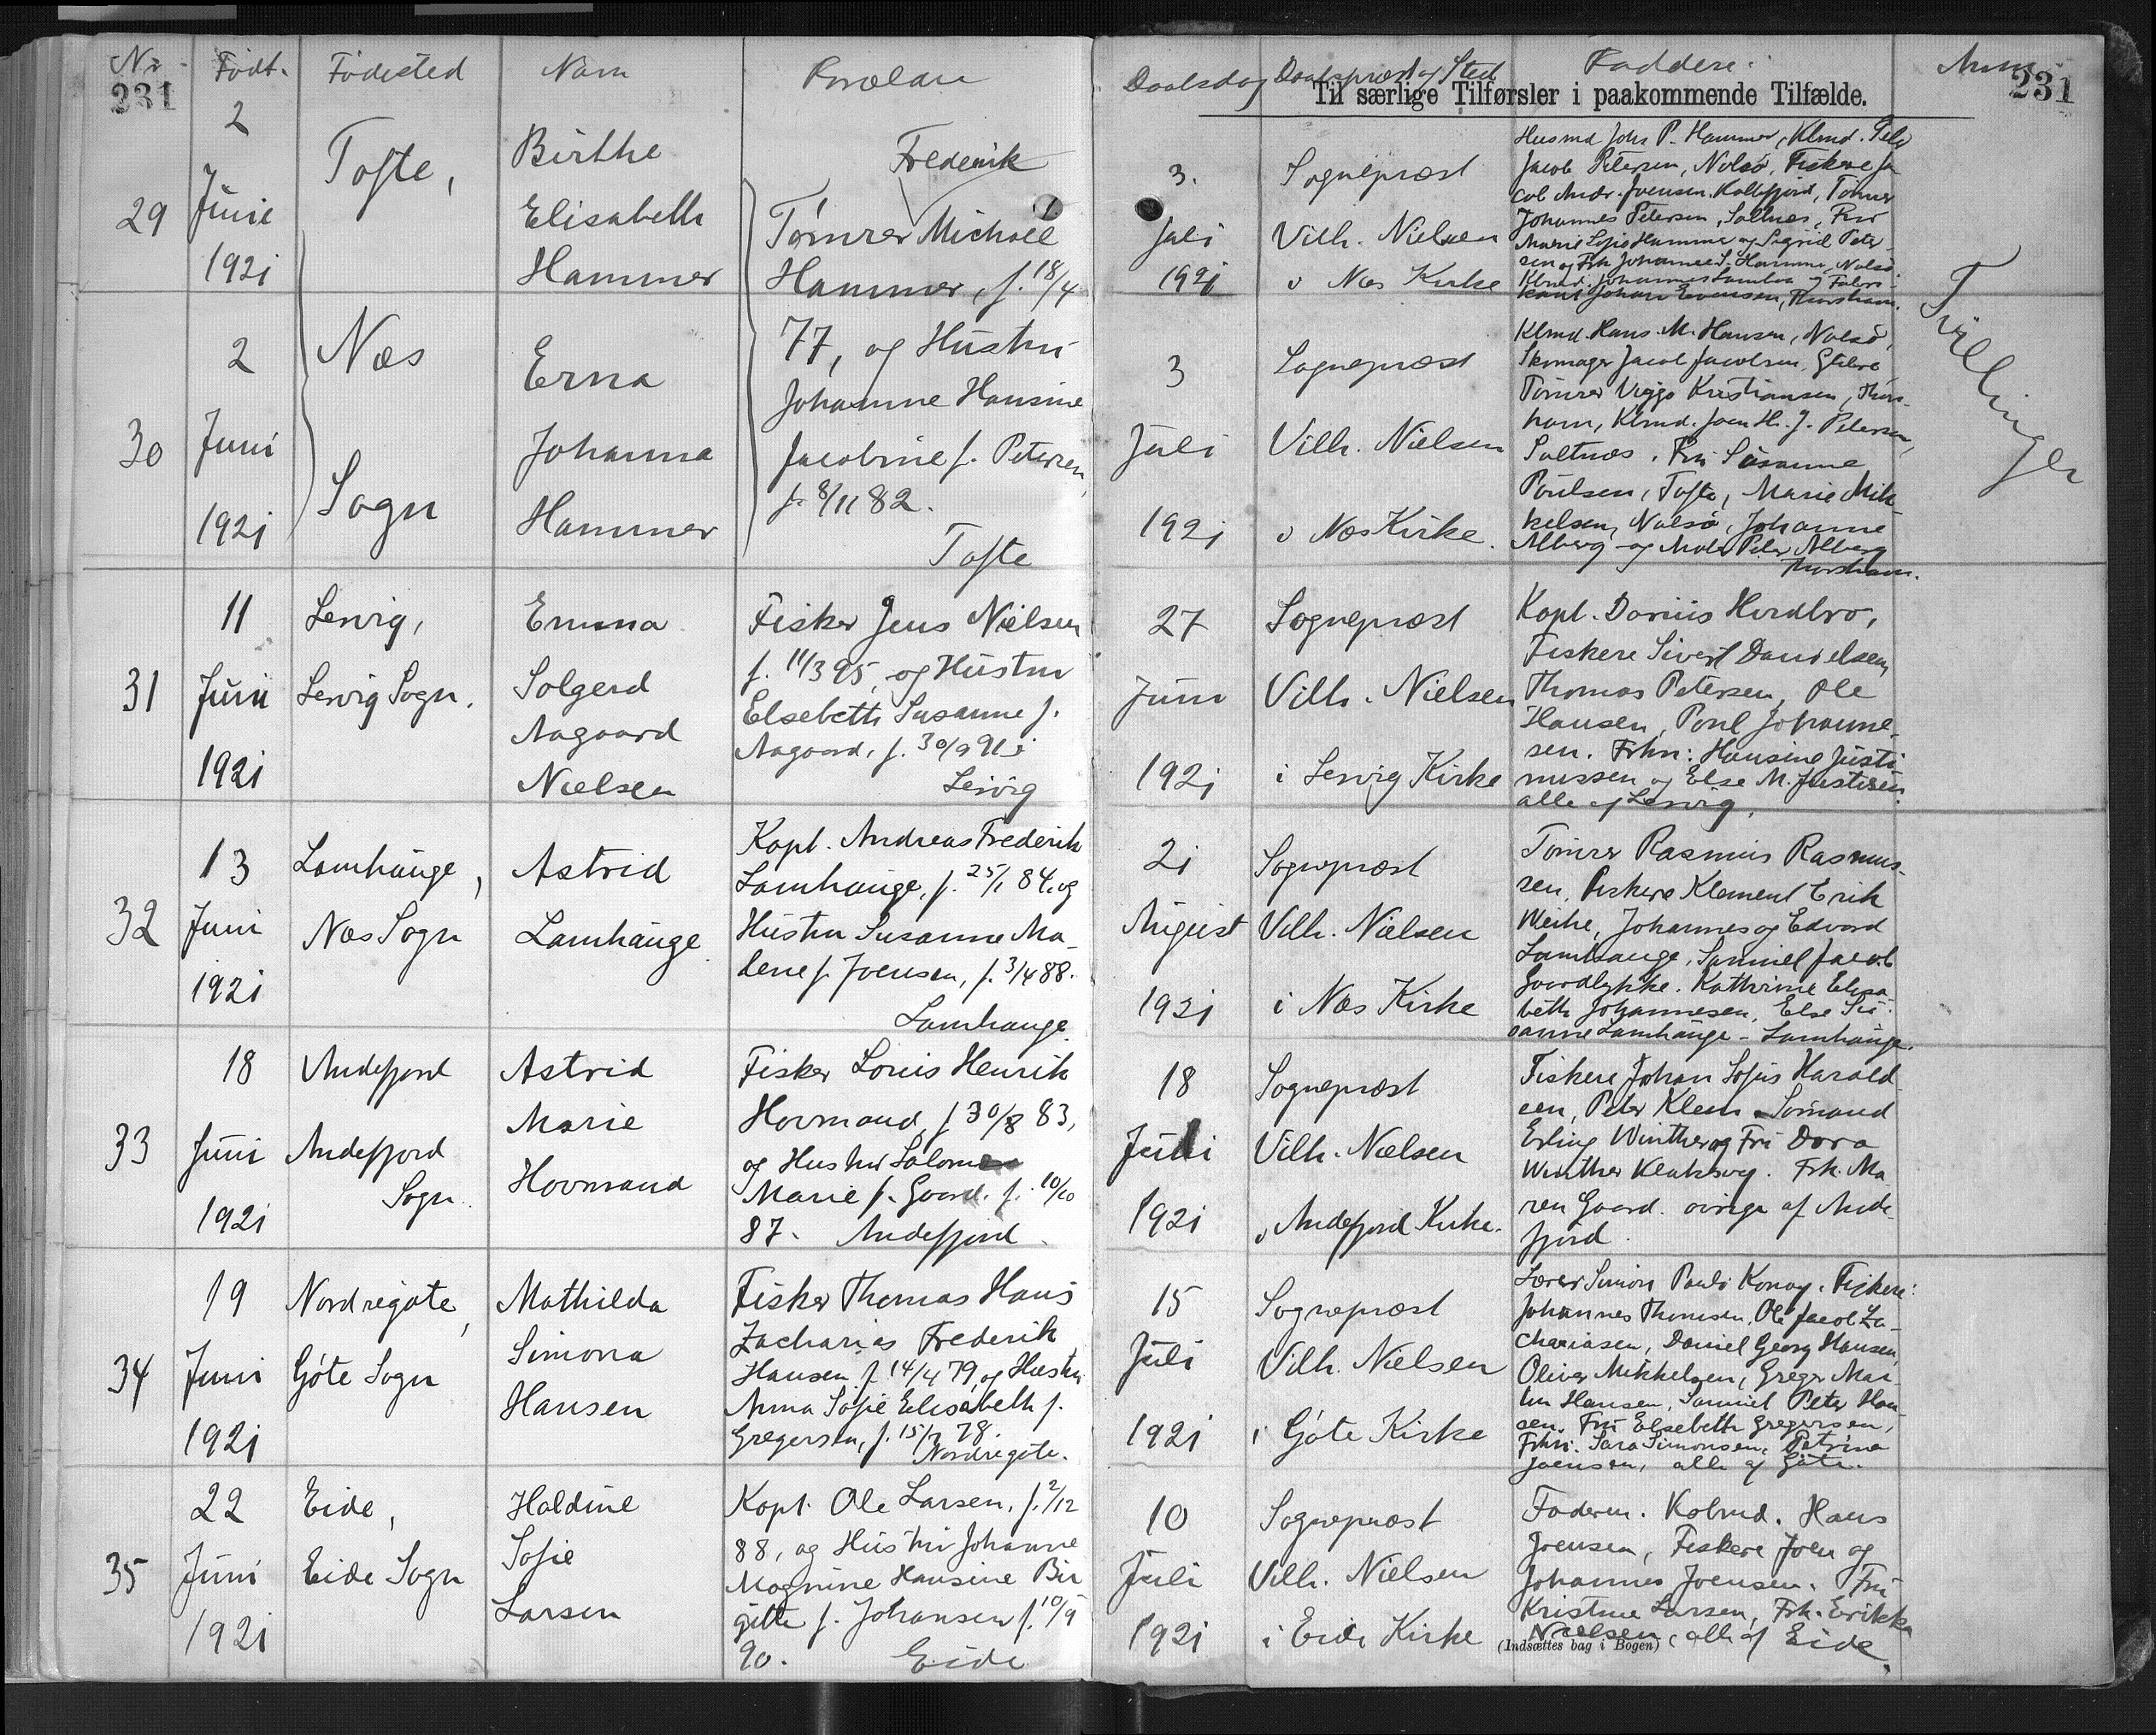 Nr. Født. Fødested Navn Forældre
231
29
2
Junie
1921
Tofte,
Birthe
Elisabeth
Hammer
Frederik
Tömrer Michael
Hammer, f. 18/4
77, og Hustru
Johanne Hansine
Jacobine f. Petersen,
f. 8/11 82.
Tofte
30
2
Juni
1921
Næs
Sogn
Erna
Johanna
Hammer
31
11
Juni
1921
Lervig,
Lervig Sogn.
Emma
Solgerd
Aagaard
Nielsen
Fisker Jens Nielsen
f. 11/3 95, og Hustru
Elsebeth Susanne f.
Aagaard, f. 30/9 91
Lervig
32
13
Juni
1921
Lamhauge,
Næs Sogn
Astrid
Lamhauge.
Kapt. Andreas Frederik
Lamhauge, f. 25/1 84, og
Hustru Susanne Ma-
lene f. Joensen, f. 3/4 88.
Lamhauge.
33
18
Juni
1921
Andefjord
Andefjord
Sogn.
Astrid
Marie
Hovmand
Fisker Louis Henrik
Hovmand, f. 30/8 83,
og Hustru Salome
Marie f. Gaard. f. 10/10
87. Andefjord.
34
19
Juni
1921
Nordregøte,
Göte Sogn
Mathilda
Simona
Hansen
Fisker Thomas Hans
Zacharias Frederik
Hansen f. 14/4 79, og Hustru
Anna Sofie Elisabeth f.
Gregersen, f. 15/ 78.
Nordregöte.
35
22
Juni
1921
Eide,
Eide Sogn
Haldine
Sofie
Larsen
Kapt. Ole Larsen, f. 2/12
88, og Hustru Johanne
Magnine Hansine Bir
gitte f. Johansen f. 10/9
90. Eide
Daabsdag Daabspræst og Sted Faddere. Anm.
Til særlige Tilførsler i paakommende Tilfælde.
231
3.
Juli
1921
Sognepræst
Vilh. Nielsen
i Næs Kirke
Husmd Johs P. Hammer, Kbmd. Peter
Jacob Petersen, Nolsö, Fiskere Ja
cob Andr. Joensen, Kollefjord, Tömrer
Johannes Petersen, Saltnæs, Fru
Marie Sofie Hammer og Sigrid Peter
sen og Frk Johanne S. Hammer, Nolsö.
Klmd. Johannes og Fabri-
kant Johan Evensen, Thorshavn.
Tvillinger
3
Juli
1921
Sognepræst
Vilh. Nielsen
i Næs Kirke.
Klmd. Hans M. Hansen, Nolsö,
Skomager Jacob Jacobsen, Glibre
Tömrer Viggo Kristiansen, Thors-
havn, Klmd. Joen H. J. Petersen,
Saltnæs. Fru Susanne
Poulsen, Tofte, Marie Mik
kelsen, Nolsö, Johanne
Alberg og Maler Peter Alberg
Thorshavn.
27
Juni
1921
Sognepræst
Vilh. Nielsen
i Lervig Kirke
Kapt. Darius Hordbro,
Fiskere Sivert Danielsen,
Thomas Petersen, Ole
Hansen, Poul Johanne-
sen. Frkn: Hansine Justi
nussen og Else M. Justisen.
alle af Lervig.
21
August
1921
Sognepræst
Vilh. Nielsen
i Næs Kirke
Tömrer Rasmus Rasmus-
sen, Fiskere Klement Erik
Weihe, Johannes og Edvard
Lamhauge, Samuel Jacob
Gaardlykke. Kathrine Elisa-
beth Johannesen, Else Su-
sanne Lamhauge - Lamhauge.
18
Juli
1921
Sognepræst
Vilh. Nielsen
i Andefjord Kirke.
Fiskere Johan Sofus Harald
sen, Peter Klem Sömand
Erling Winther og Fru Dora
Winther Klaksvig. Frk. Ma
ren Gaard. övrige af Ande-
fjord.
15
Juli
1921
Sognepræst
Vilh. Nielsen
i Göte Kirke
Lærer Simon Pauli Konoy. Fiskere:
Johannes Thomsen, Ole Jacob Za-
chariasen, Daniel Georg Hansen,
Oliver Mikkelsen, Gregr Mar-
tin Hansen, Samuel Peter Han
sen. Fru Elsebeth Gregersen,
Frkn. Sara Simonsen, Petrina
Joensen, alle af Göte.
10
Juli
1921
Sognepræst
Vilh. Nielsen
i Eide Kirke
Faderen. Kobmd. Hans
Joensen, Fiskere Joen og
Johannes Joensen. Fru
Kristine Larsen, Frk. Erikka
Nielsen, alle af Eide.
(Indsættes bag i Bogen)